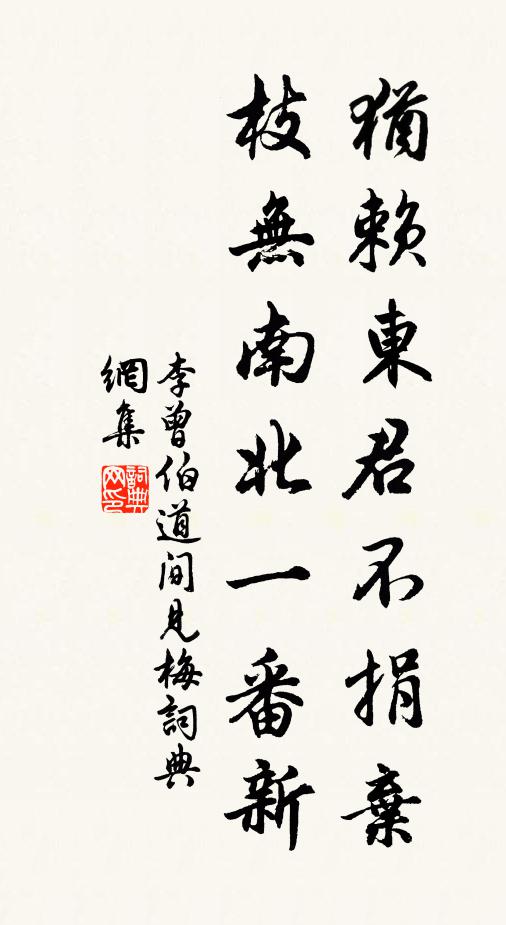 猶賴東君不捐棄
枝無南北一番新
李曾伯道間見梅詞典
網集
詞典網印